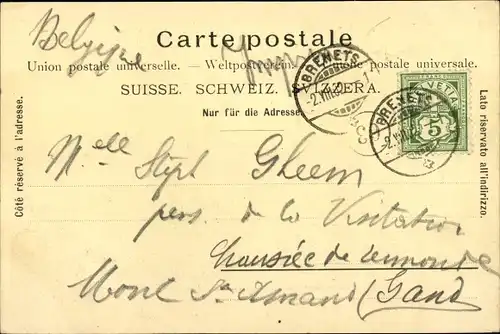 Belgique
Carte postale
Union postale universelle. — Weltpostverein. — postale universale.
SUISSE. SCHWEIZ. SVIZZERA.
Nur für die Adresse.
Côté réservé à l'adresse.
Lato riservato all'indirizzo.
BRENETS
-2.VIII.02
HELVETIA
5
BRENETS
-2.VIII
Melle Steph Gheem
pens. de la Visitation
Chaussée de Termonde
Mont St Amand (Gand)